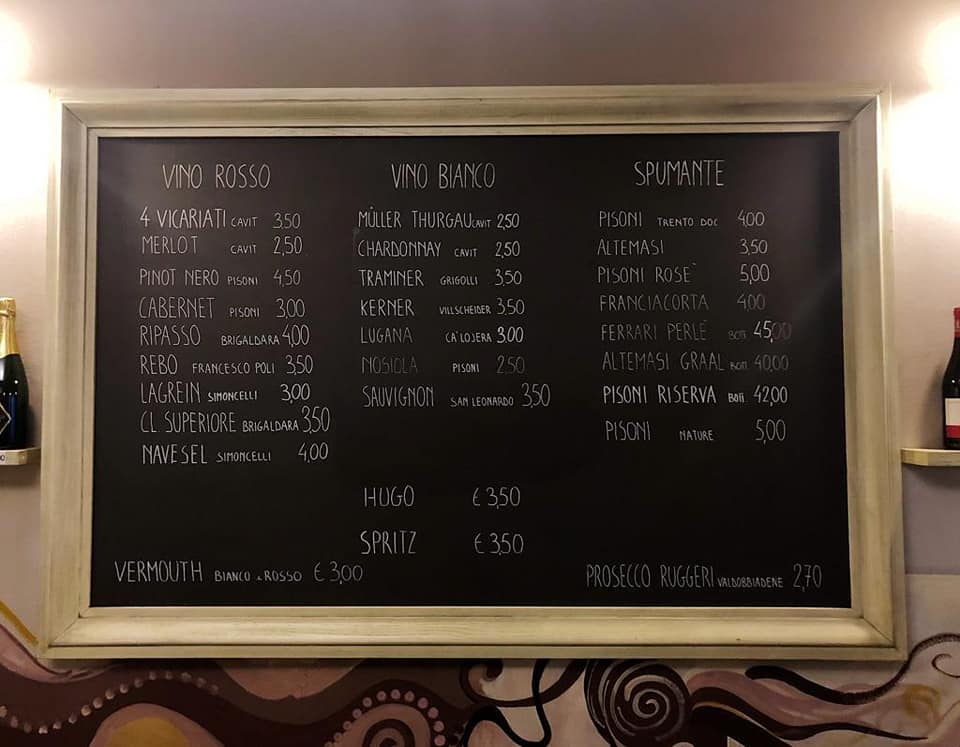 VINO ROSSO
4 VICARIATI CAVIT 3,50
MERLOT CAVIT 2,50
PINOT NERO PISONI 4,50
CABERNET PISONI 3,00
RIPASSO BRIGALDARA 4,00
REBO FRANCESCO POLI 3,50
LAGREIN SIMONCELLI 3,00
CL SUPERIORE BRIGALDARA 3,50
NAVESEL SIMONCELLI 4,00
VINO BIANCO
MÜLLER THURGAU CAVIT 2,50
CHARDONNAY CAVIT 2,50
TRAMINER GRIGOLLI 3,50
KERNER VILLSCHEIDER 3,50
LUGANA CA'LOJERA 3,00
NOSIOLA PISONI 2,50
SAUVIGNON SAN LEONARDO 3,50
SPUMANTE
PISONI TRENTO DOC 4,00
ALTEMASI 3,50
PISONI ROSE' 5,00
FRANCIACORTA 4,00
FERRARI PERLÉ BOTT. 45,00
ALTEMASI GRAAL BOTT. 40,00
PISONI RISERVA BOTT. 42,00
PISONI NATURE 5,00
HUGO € 3,50
SPRITZ € 3,50
VERMOUTH BIANCO & ROSSO € 3,00
PROSECCO RUGGERI VALDOBBIADENE 2,70